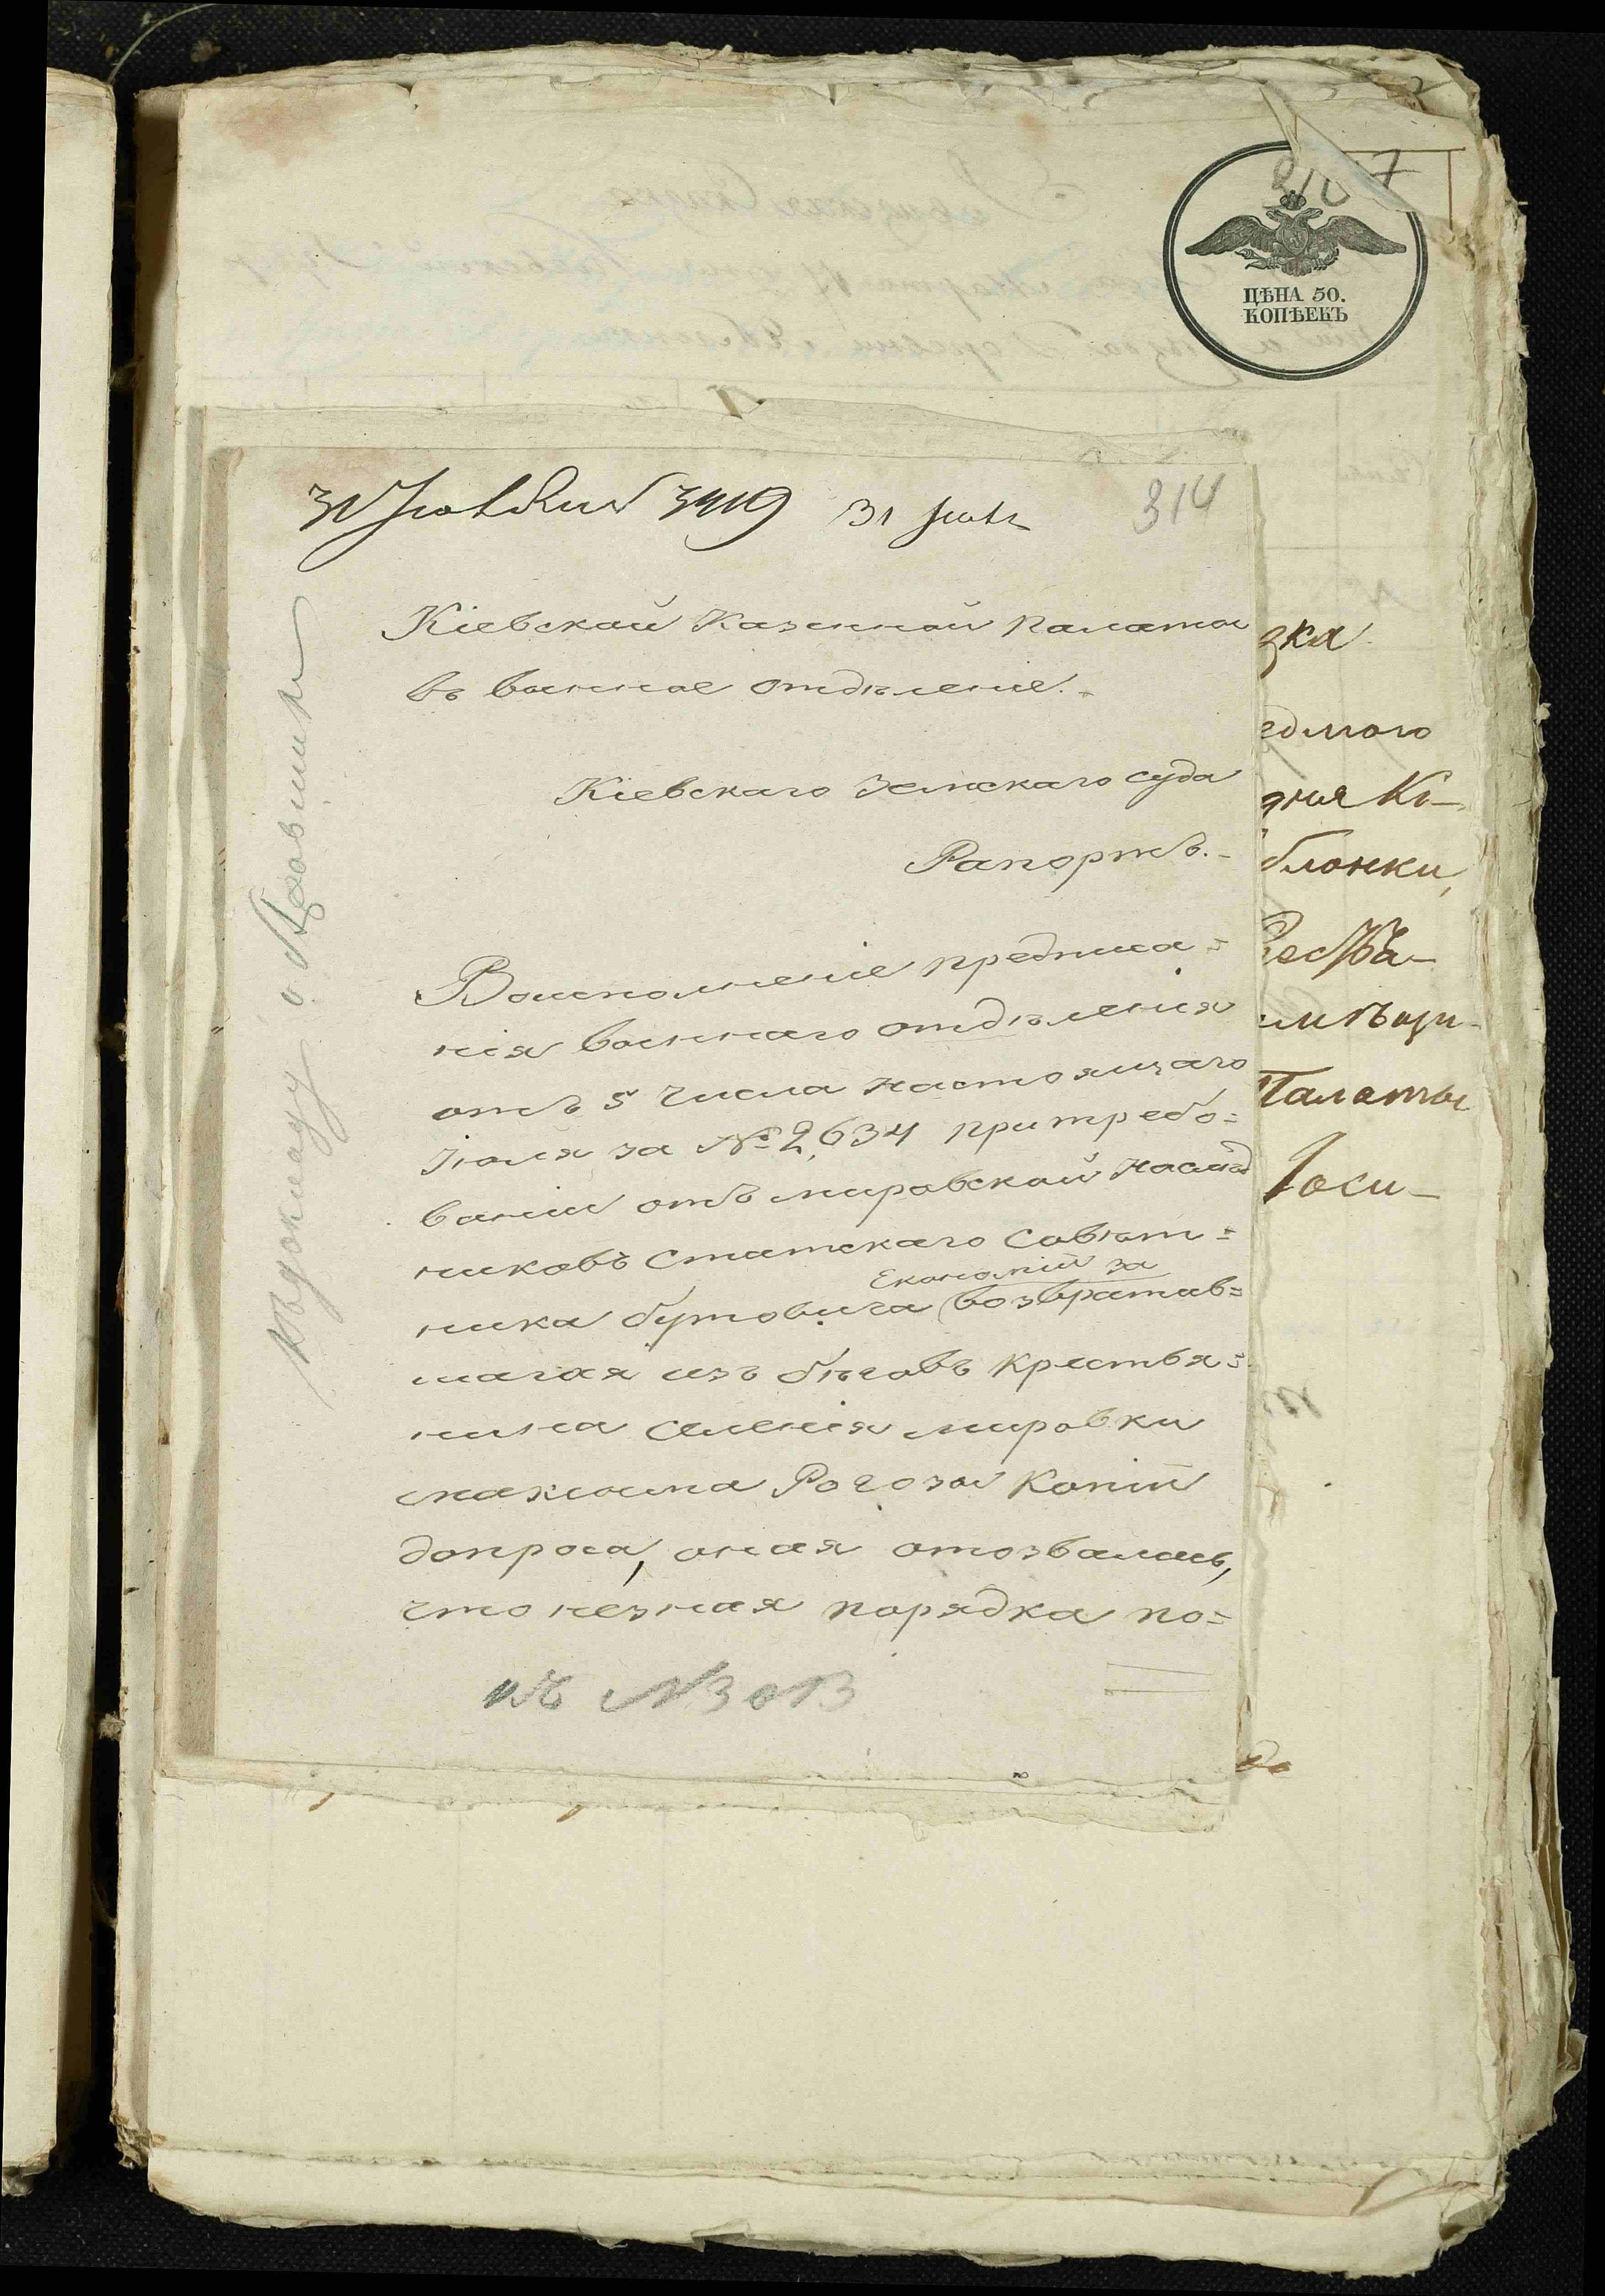 ЦѢНА 50.
КОПѢЕКЪ
3419 31
314
Кіевской Казенной палаты
въ военное отдѣленіе.-
Кіевскаго Земскаго суда
Рапортъ.-
Воисполненіе предписа=
нія военнаго отдѣленія
отъ 5 числа настоящаго
Іюля за № 2,634 при требо=
ваніи отъ мировской наслѣд
никовъ Статскаго Совѣт=
Економіи за
ника бутовича возвратив=
шагося изъ бѣговъ крестья=
нина селенія мировки
максима Рогозы Копіи
допроса, оная отозвалась,
что незная порядка по=
къ докладу о
зка
едмого
дня Кі-
блонки,
Палаты
Іоси-